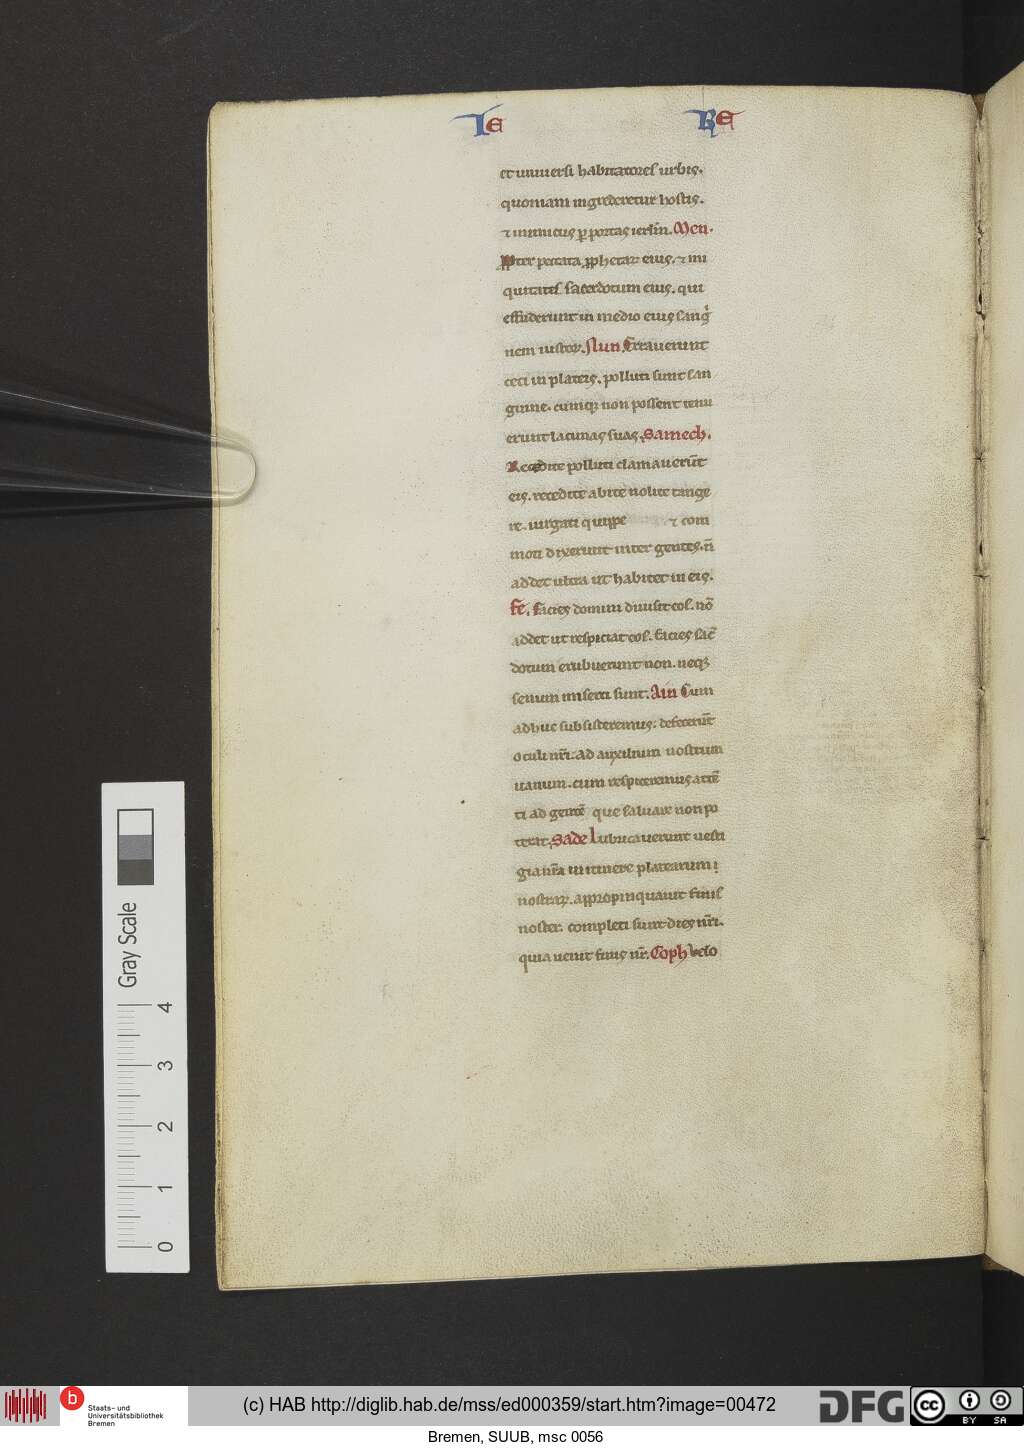 IE RE
et uniuersi habitatores urbis.
quoniam ingrederetur hostis.
⁊ inimicus ꝑ portas ierl̅m. Men.
ꝓpter peccata ꝓphetaꝝ eius. ⁊ ini
quitates sacerdotum eius. qui
effuderunt in medio eius sangͥ
nem iustoꝝ. Nun Errauerunt
ceci in plateis. polluti sunt san
guine. cumqꝫ non possent tenu
erunt lacinias suas. Samech.
Recedite polluti clamauerūt
eis. recedite abite nolite tange
re. iurgati quippe ⁊ com
moti dixerunt inter gentes. n̄
addet ultra ut habitet in eis.
Fe. Facies domini diuisit eos. nō
addet ut respiciat eos. Facies sac̄
dotum erubuerunt non. neqꝫ
senum miserti sunt. Ain Cum
adhuc subsisteremus. defecerūt
oculi nr̄i. ad auxilium nostrum
uanum. cum respiceremus attē
ti ad gentē que saluare non po
terat. Sade Lubricauerunt uesti
gia nr̄a in itinere platearum
nostraꝝ. appropinquauit finis
noster. completi sunt dies nr̄i.
quia uenit finis nr̄. Coph Velo
Gray Scale
4
3
2
1
0
Staats- und
Universitätsbibliothek
Bremen
(c) HAB http://diglib.hab.de/mss/ed000359/start.htm?image=00472
DFG
cc BY SA
Bremen, SUUB, msc 0056